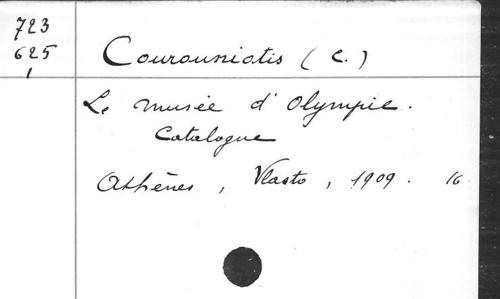 723
625
1
Courouniotis (C.)
Le musée d'Olympie.
Catalogue
Athènes, Vlasto, 1909. 16